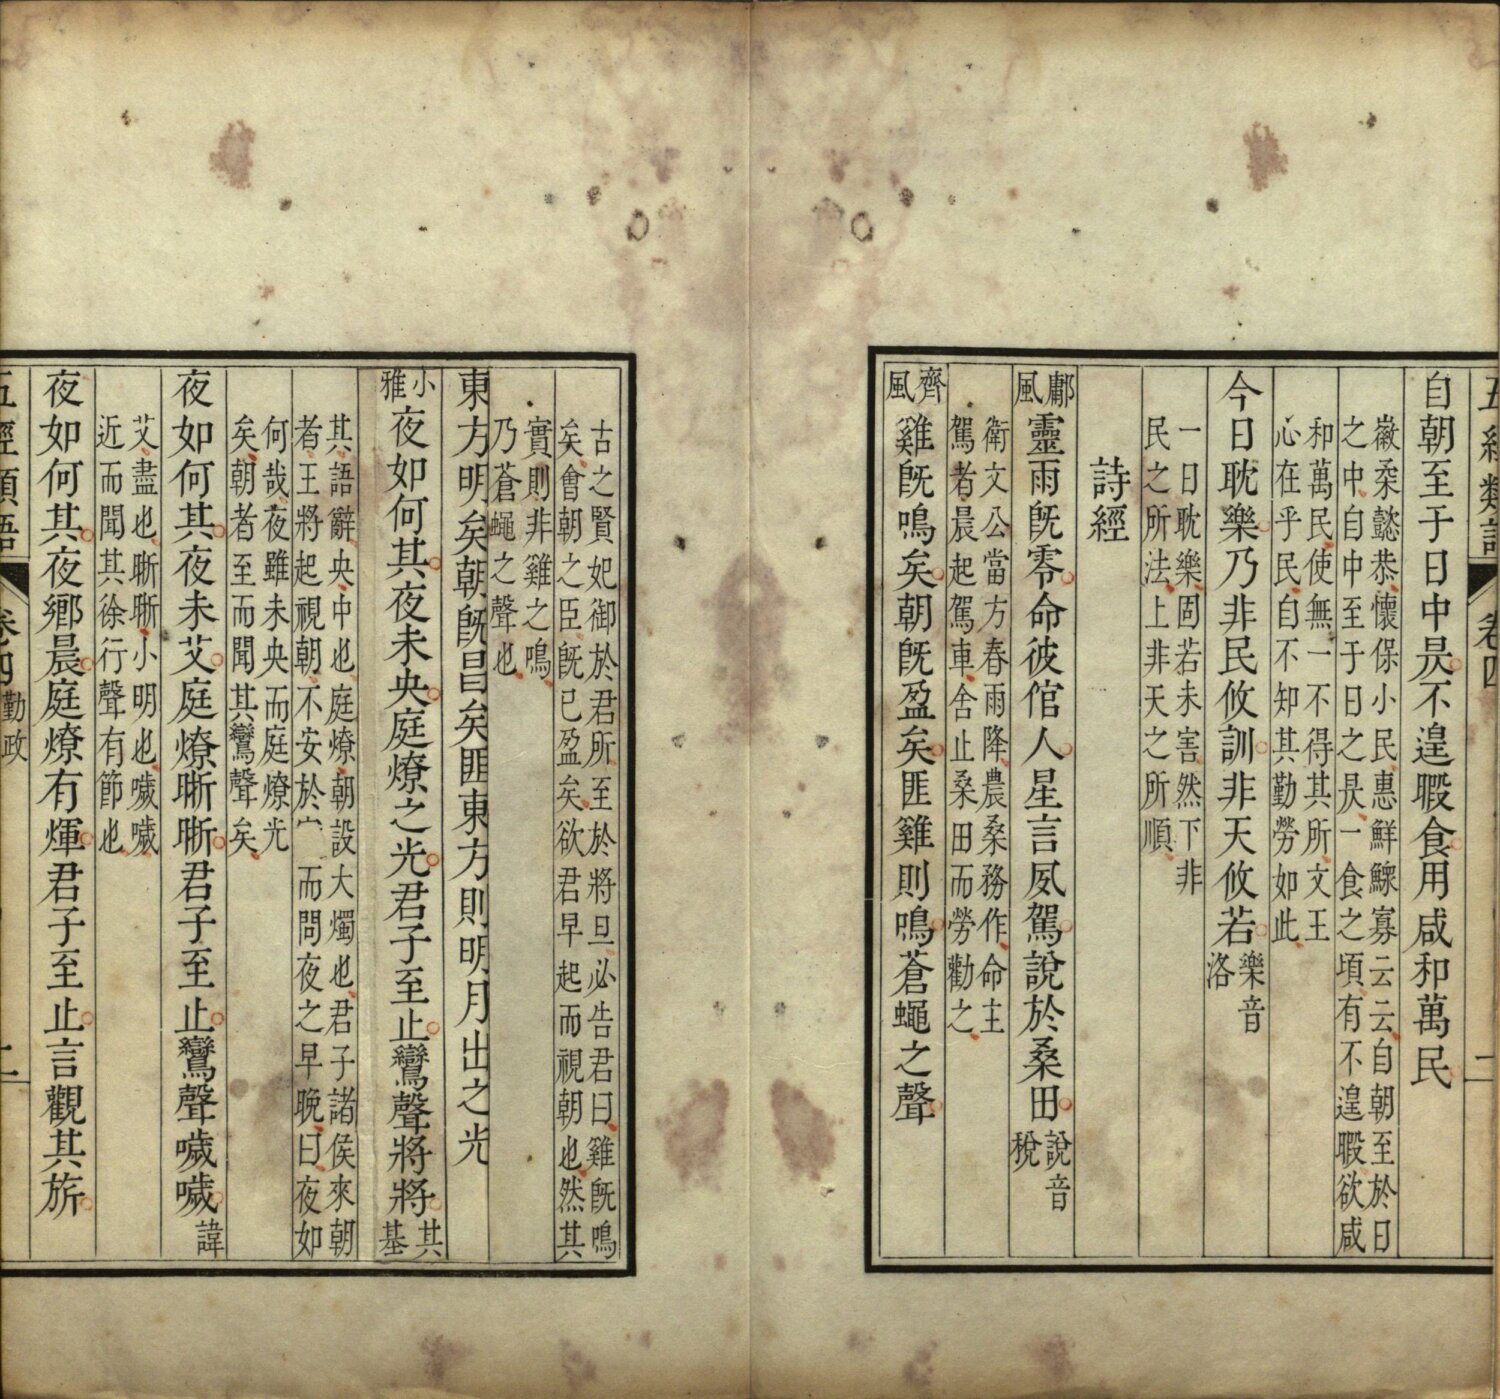 五經類語 卷四 二
自朝至于日中昃不遑暇食用咸和萬民
徽柔懿恭懷保小民惠鮮鰥寡云云自朝至於日
之中自中至于日之昃一食之頃有不遑暇欲咸
和萬民使無一不得其所文王
心在乎民自不知其勤勞如此
今日耽樂乃非民攸訓非天攸若
樂音
洛
一日耽樂固若未害然下非
民之所法上非天之所順
詩經
鄘
風
靈雨既零命彼倌人星言夙駕說於桑田
說音
稅
衛文公當方春雨降農桑務作命主
駕者晨起駕車舍止桑田而勞勸之
齊
風
雞既鳴矣朝既盈矣匪雞則鳴蒼蠅之聲
古之賢妃御於君所至於將旦必告君曰雞既鳴
矣會朝之臣既已盈矣欲君早起而視朝也然其
實則非雞之鳴
乃蒼蠅之聲也
東方明矣朝既昌矣匪東方則明月出之光
小
雅
夜如何其夜未央庭燎之光君子至止鸞聲將將
其
基
其語辭央中也庭燎朝設大燭也君子諸侯來朝
者王將起視朝不安於 而問夜之早晚曰夜如
何哉夜雖未央而庭燎光
矣朝者至而聞其鸞聲矣
夜如何其夜未艾庭燎晰晰君子至止鸞聲噦噦
諱
艾盡也晰晰小明也噦噦
近而聞其徐行聲有節也
夜如何其夜鄉晨庭燎有煇君子至止言觀其旂
五經類語 卷四 勤政 二